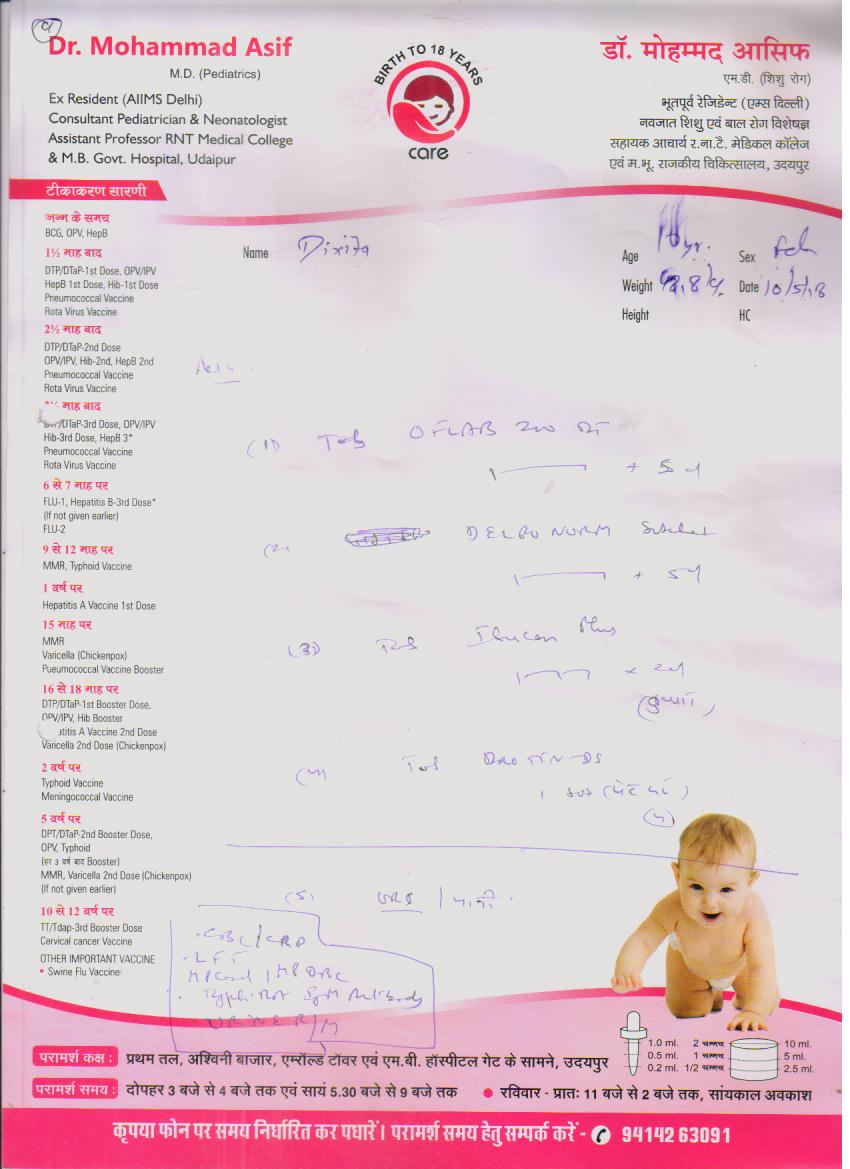 Dr. Mohammad Asif
M.D. (Pediatrics)
Ex Resident (AIIMS Delhi)
Consultant Pediatrician & Neonatologist
Assistant Professor RNT Medical College
& M.B. Govt. Hospital, Udaipur
BIRTH TO 18 YEARS
care
डॉ. मोहम्मद आसिफ
एम.डी. (शिशु रोग)
भूतपूर्व रेजिडेन्ट (एम्स दिल्ली)
नवजात शिशु एवं बाल रोग विशेषज्ञ
सहायक आचार्य र.ना.टै. मेडिकल कॉलेज
एवं म.भू. राजकीय चिकित्सालय, उदयपुर
टीकाकरण सारणी
जन्म के समय
BCG, OPV, HepB
1½ माह बाद
DTP/DTaP-1st Dose, OPV/IPV
HepB 1st Dose, Hib-1st Dose
Pneumococcal Vaccine
Rota Virus Vaccine
2½ माह बाद
DTP/DTaP-2nd Dose
OPV/IPV, Hib-2nd, HepB 2nd
Pneumococcal Vaccine
Rota Virus Vaccine
माह बाद
/DTaP-3rd Dose, OPV/IPV
Hib-3rd Dose, HepB 3*
Pneumococcal Vaccine
Rota Virus Vaccine
6 से 7 माह पर
FLU-1, Hepatitis B-3rd Dose*
(If not given earlier)
FLU-2
9 से 12 माह पर
MMR, Typhoid Vaccine
1 वर्ष पर
Hepatitis A Vaccine 1st Dose
15 माह पर
MMR
Varicella (Chickenpox)
Pueumococcal Vaccine Booster
16 से 18 माह पर
DTP/DTaP-1st Booster Dose,
OPV/IPV, Hib Booster
atitis A Vaccine 2nd Dose
Varicella 2nd Dose (Chickenpox)
2 वर्ष पर
Typhoid Vaccine
Meningococcal Vaccine
5 वर्ष पर
DPT/DTaP-2nd Booster Dose,
OPV, Typhoid
(हर 3 वर्ष बाद Booster)
MMR, Varicella 2nd Dose (Chickenpox)
(If not given earlier)
10 से 12 वर्ष पर
TT/Tdap-3rd Booster Dose
Cervical cancer Vaccine
OTHER IMPORTANT VACCINE
• Swine Flu Vaccine
Name Dixita
Age yr. Sex
Weight Date 10/5/18
Height HC
(1) Tab OFLAB 200
1 + 5
(2)
1 + 5
(3) Tab Plus
1 x 2
(4) Tab DROTIN-DS
1 SOS (पेट दर्द)
(5) ORS / पानी
CBC/CRP
LFT
Typhi Dot IgM Antibody
URINE R/M
1.0 ml. 2 चम्मच 10 ml.
0.5 ml. 1 चम्मच 5 ml.
0.2 ml. 1/2 चम्मच 2.5 ml.
परामर्श कक्ष : प्रथम तल, अश्विनी बाजार, एमरॉल्ड टॉवर एवं एम.बी. हॉस्पीटल गेट के सामने, उदयपुर
परामर्श समय : दोपहर 3 बजे से 4 बजे तक एवं सायं 5.30 बजे से 9 बजे तक • रविवार - प्रातः 11 बजे से 2 बजे तक, सांयकाल अवकाश
कृपया फोन पर समय निर्धारित कर पधारें। परामर्श समय हेतु सम्पर्क करें - 94142 63091